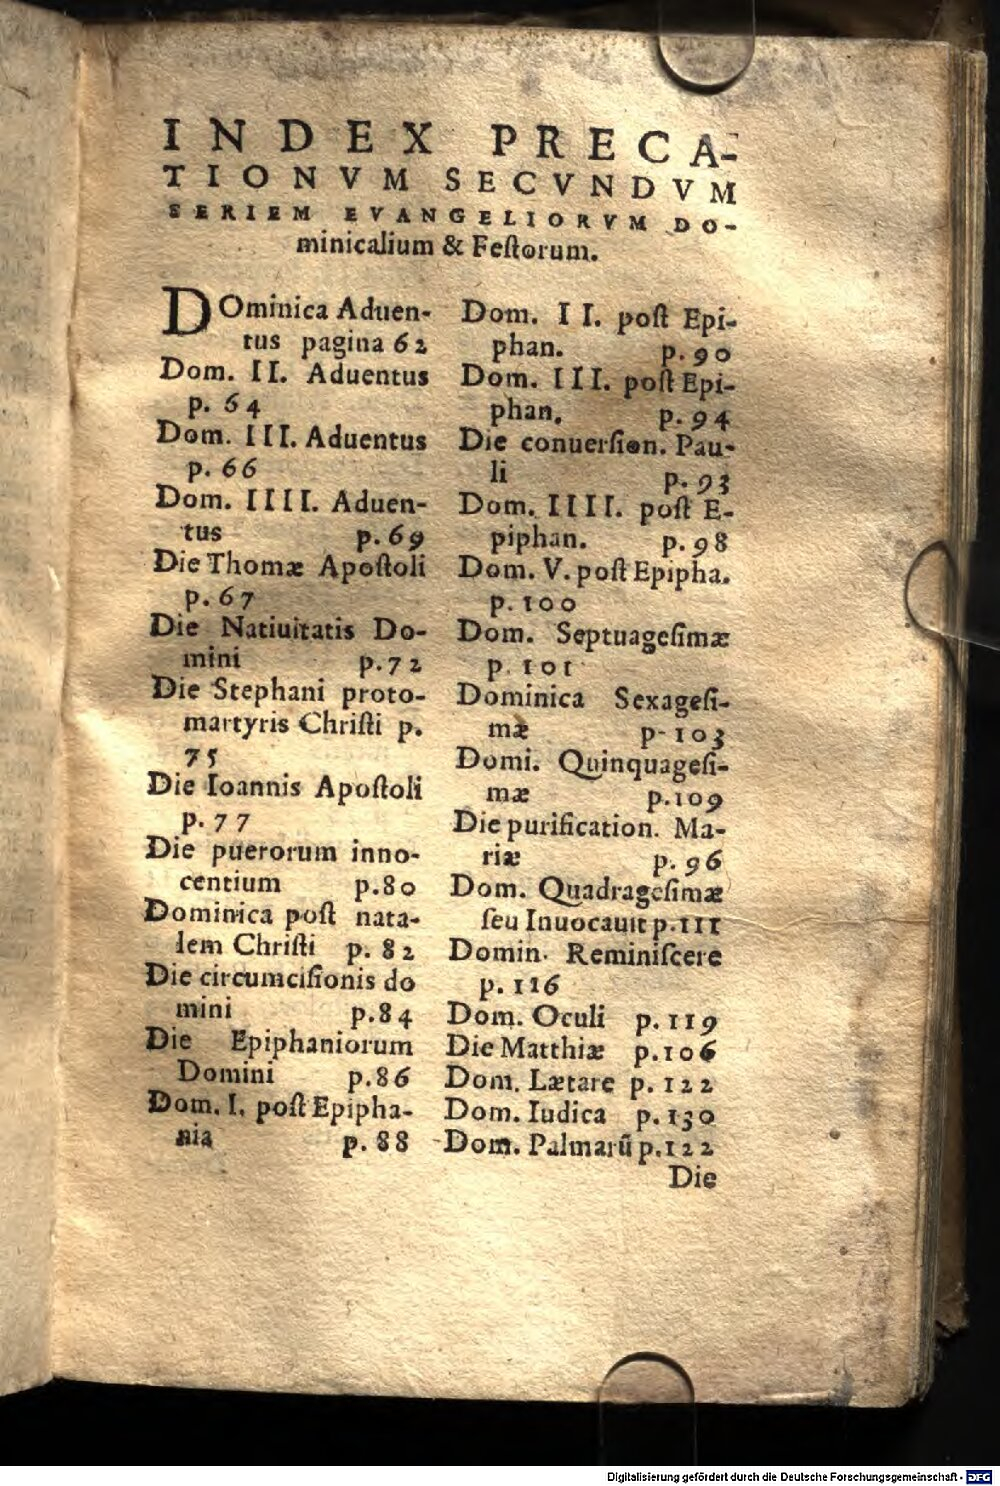 INDEX PRECA-
TIONVM SECVNDVM
SERIEM EVANGELIORVM DO-
minicalium & Feſtorum.
DOminica Aduen-
tus pagina 62
Dom. II. Aduentus
p. 64
Dom. III. Aduentus
p. 66
Dom. IIII. Aduen-
tus p. 69
Die Thomæ Apoſtoli
p. 67
Die Natiuitatis Do-
mini p. 72
Die Stephani proto-
martyris Chriſti p.
75
Die Ioannis Apoſtoli
p. 77
Die puerorum inno-
centium p. 80
Dominica poſt nata-
lem Chriſti p. 82
Die circumciſionis do
mini p. 84
Die Epiphaniorum
Domini p. 86
Dom. I. poſt Epipha-
nia p. 88
Dom. II. poſt Epi-
phan. p. 90
Dom. III. poſt Epi-
phan. p. 94
Die conuerſion. Pau-
li p. 93
Dom. IIII. poſt E-
piphan. p. 98
Dom. V. poſt Epipha.
p. 100
Dom. Septuageſimæ
p. 101
Dominica Sexageſi-
mæ p-103
Domi. Quinquageſi-
mæ p. 109
Die purification. Ma-
riæ p. 96
Dom. Quadrageſimæ
ſeu Inuocauit p. 111
Domin. Reminiſcere
p. 116
Dom. Oculi p. 119
Die Matthiæ p. 106
Dom. Lætare p. 122
Dom. Iudica p. 130
Dom. Palmarū p. 122
Die
Digitalisierung gefördert durch die Deutsche Forschungsgemeinschaft - DFG